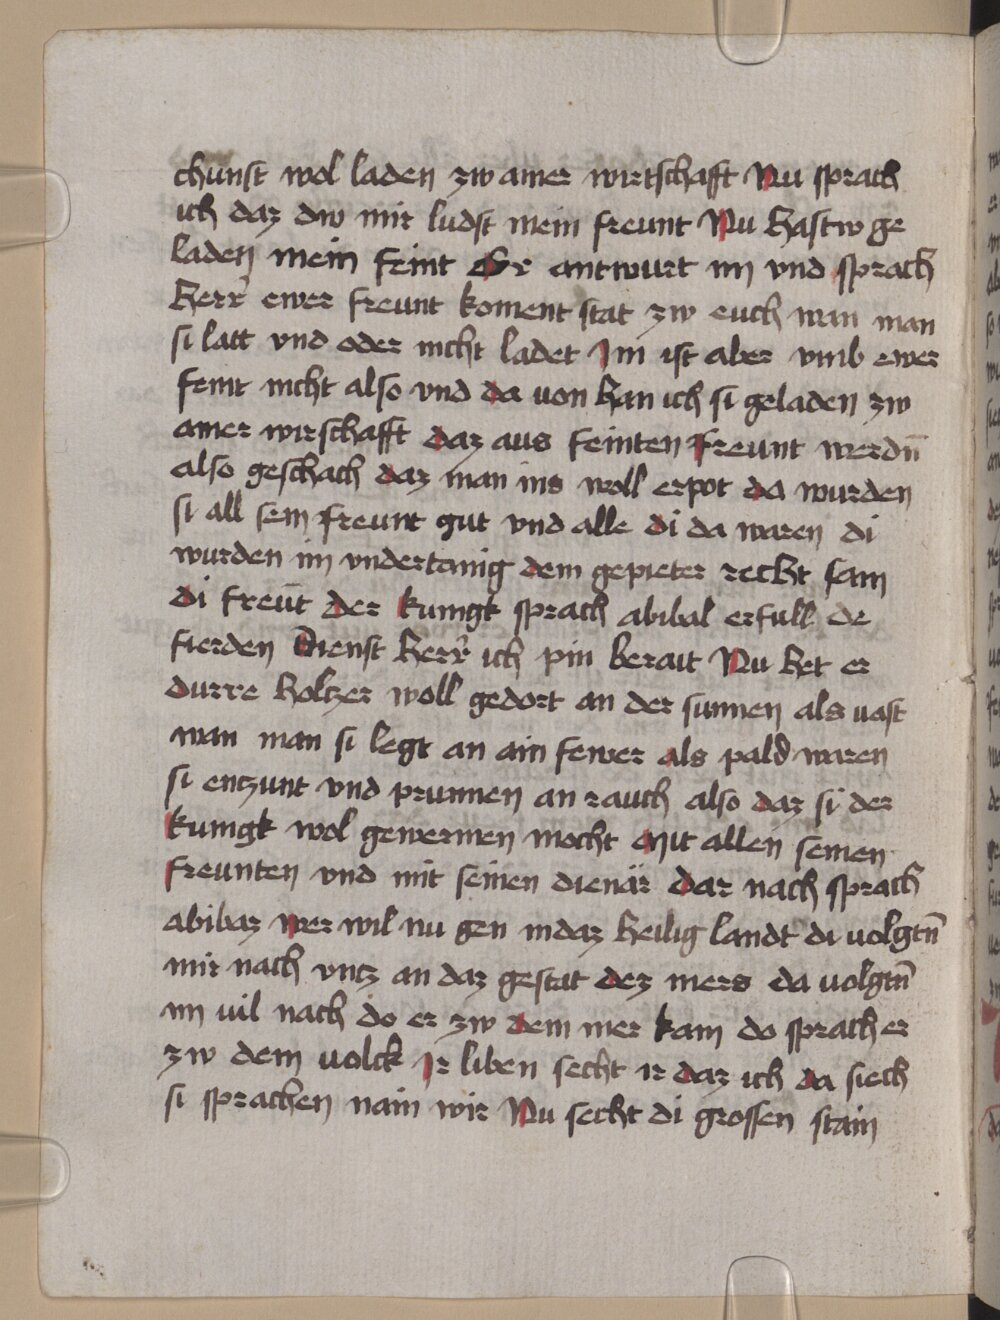 chunst wol laden zw ainer wirtschafft Nu sprach
ich daz dw mir ludst mein freunt Nu hastw ge
laden mein feint Er antwurt im vnd sprach
herr ewer freunt koment stät zw euch wan man
si latt vnd oder nicht ladet Im ist aber vmb ewer
feint nicht also vnd da von han ich si geladen zw
ainer wirschafft daz aus feinten freunt werdn̄
also geschach daz man ins woll erpot da wurden
si all sein freunt gut vnd alle di da waren di
wurden im vndertanig dem gepieter recht sam
di freūt der kunigk sprach abibal erfull de
fierden dienst herr ich pin berait Nu het er
durre holtzer woll gedort an der sunnen als vast
wan man si legt an ain fewer als pald waren
si entzunt vnd prunnen an rauch also daz si der
kunigk wol gewermen mocht Mit allen seinen
freunten vnd mit seinen dienär dar nach sprach
abibaz wer wil nu gen in daz heilig landt di volgtn̄
mir nach vntz an daz gestat dez mers da volgtn̄
im vil nach do er zw dem mer kam do sprach er
zw dem volck Ir liben secht ir daz ich da siech
si sprachen nain wir Nu secht di grossen stain